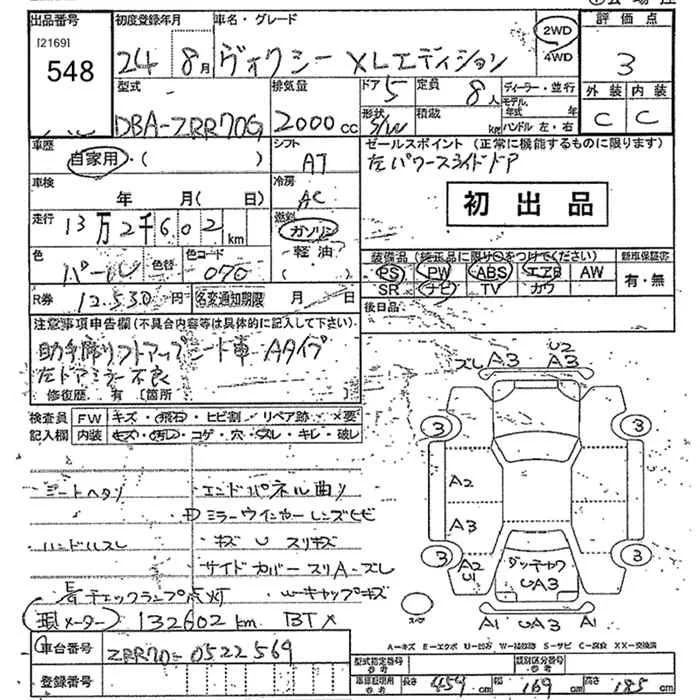 出品番号
[2169]
548
初度登録年月
24 8月
車名・グレード
ヴォクシー XLエディション
2WD
4WD
評価点
3
外装 内装
C C
型式
DBA-ZRR70G
排気量
2000cc
ドア 5
定員 8人
形状 S/W
積載 kg
ディーラー・並行
モデル年式 年
ハンドル 左・右
車歴
自家用・( )
シフト
AT
セールスポイント(正常に機能するものに限ります)
左パワースライドドア
初出品
車検
年 月( 日)
冷房
AC
走行
13万2千602km
燃料
ガソリン
軽油
( )
色
パール
色替
色コード
070
装備品(純正品に限り○をつけてください)
PS PW ABS エアB AW
SR ナビ TV カワ
新車保証書
有・無
R券 12,530円
名変通知期限 月 日
後日品
注意事項申告欄(不具合内容等は具体的に記入して下さい)
助手席リフトアップシート車 Aタイプ
左ドアミラー不良
修復歴 有 [箇所 ]
検査員記入欄
FW キズ・飛石・ヒビ割・リペア跡・×要
内装 キズ・汚レ・コゲ・穴・スレ・キレ・破レ
シートヘタリ
・エンドパネル曲り
ミラーウインカーレンズヒビ
ハンドルスレ
・キズ U スリキズ
サイドカバースリA・ズレ
チェックランプ点灯
キャップキズ
現メーター 132602km BT×
車台番号
ZRR70-0522569
登録番号
ズレ A3 U2 A3
3 3
A2
A3
A2 U1
3 3
ダッチャク
UA3
A1 UA3 A1
スペア
A=キズ E=エクボ U=凹み W=補修跡 S=サビ C=腐食 XX=交換済
型式指定番号 参考
類別区分番号 参考
車検証明用 参考
長さ 459cm 幅 169cm 高さ 185cm